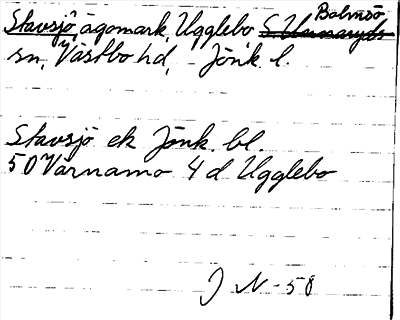 Bolmsö
Stavsjö, ägomark, Ugglebo S. Unnaryds
sn, Västbo hd, Jönk. l.
Stavsjö ek Jönk. bl.
50 Värnamo 4 d Ugglebo
J N-58